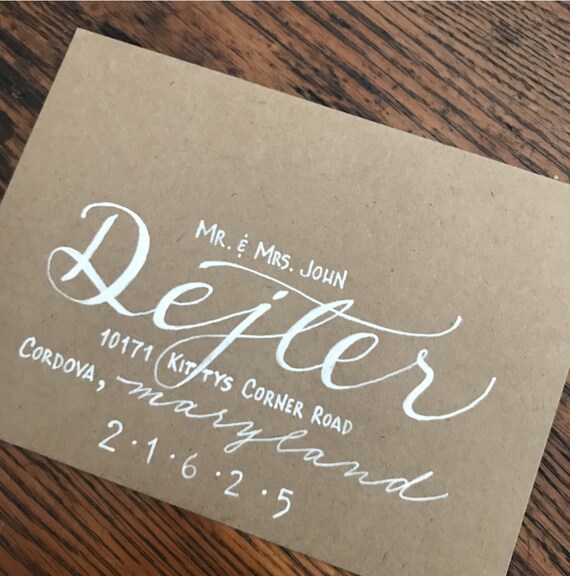 Mr. & Mrs. John
Dejter
10171 Kittys Corner Road
Cordova, maryland
2·1·6·2·5